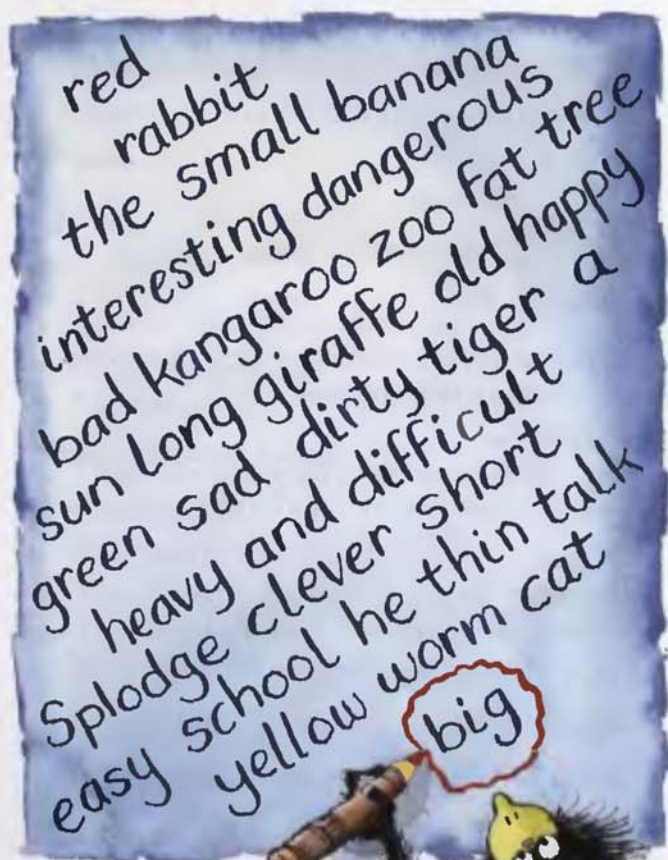 red
rabbit
the small banana
interesting dangerous
bad kangaroo zoo fat tree
sun long giraffe old happy
green sad dirty tiger a
heavy and difficult
Splodge clever short
easy school he thin talk
yellow worm cat
big